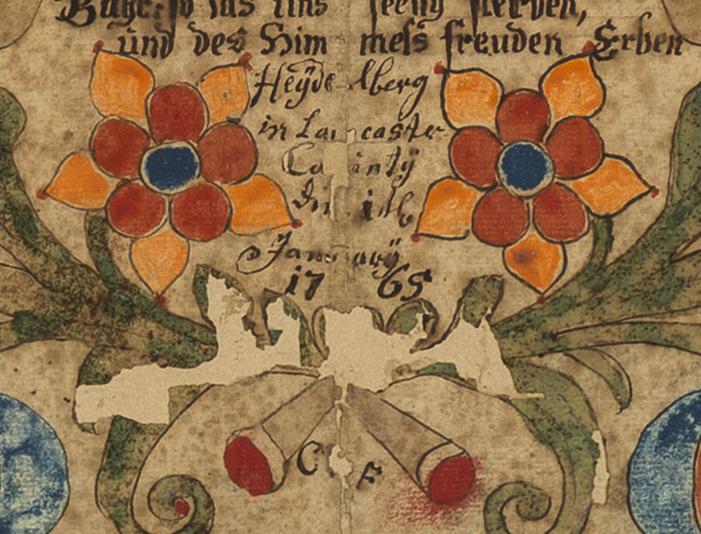 so las uns seelig sterben,
und des Himmels freuden Erben
Heÿdelberg
in Lancaster
Countÿ
Januarÿ
1765
C F